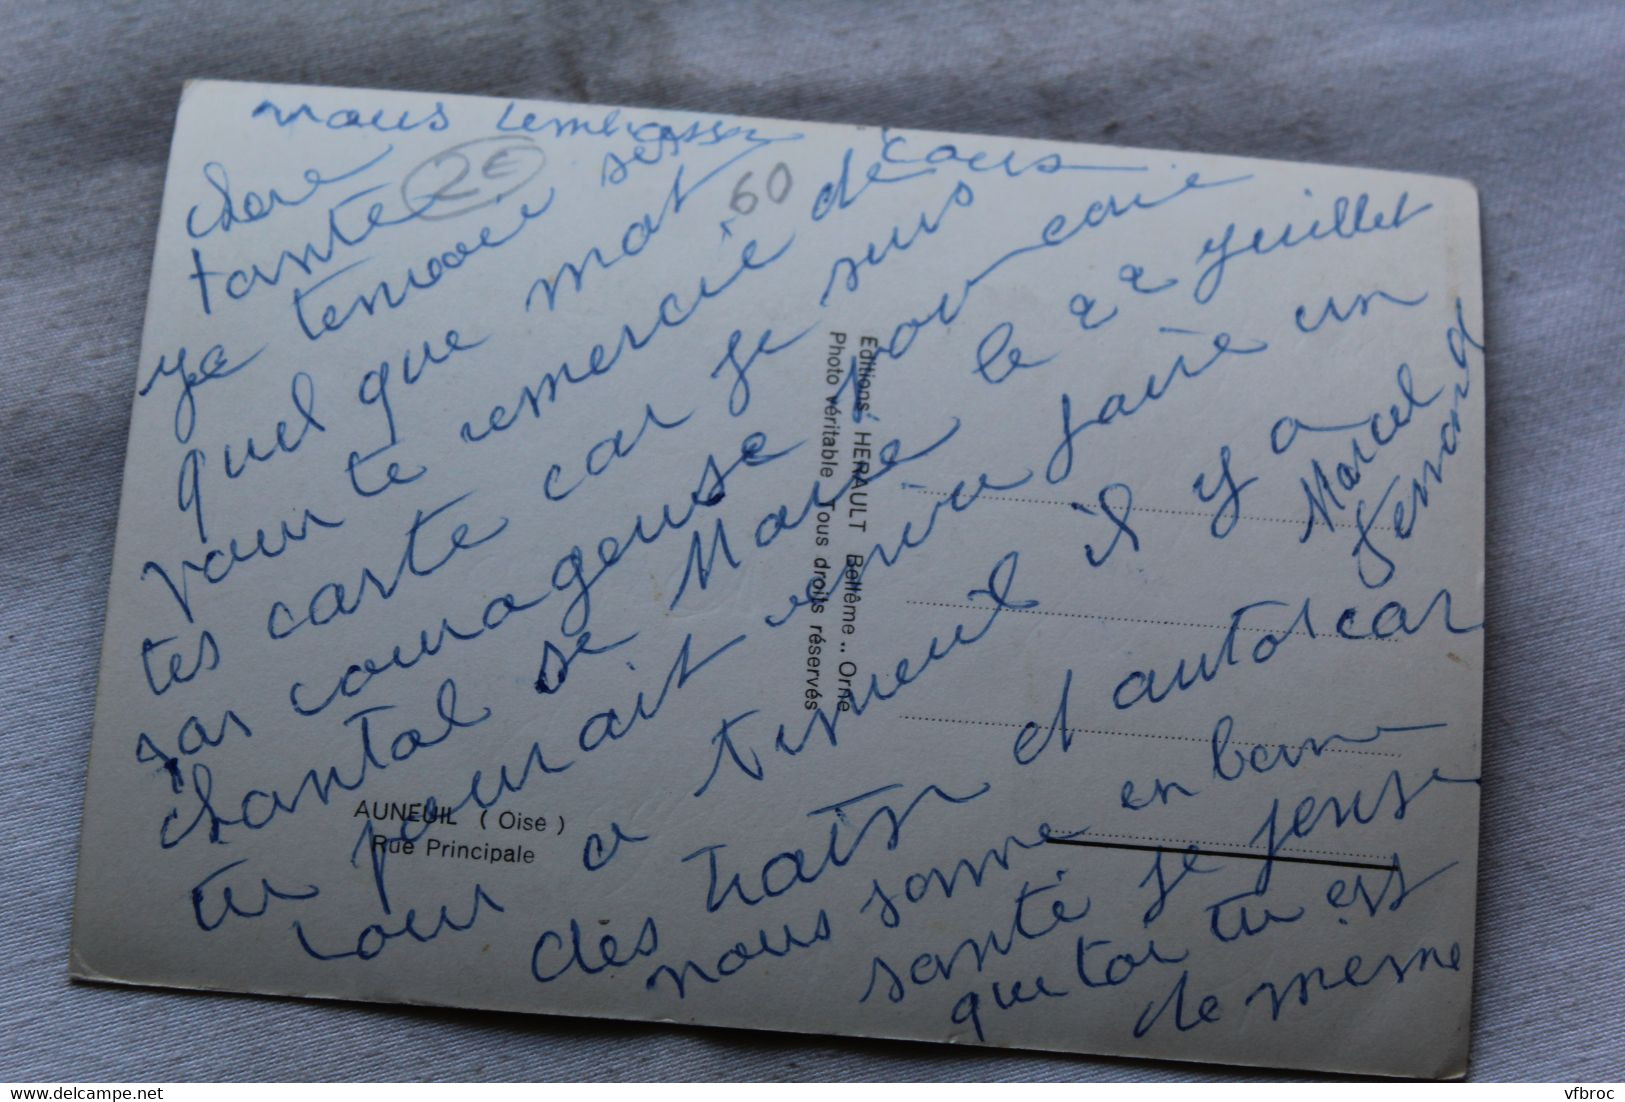 chere
tante
je tenvoie ses
quel que mot
pour te remercie de
tes carte car je suis
pas courageuse pour ecrie
chantal se Marie le 22 juillet
tu pourait venir faire un
tour a tineul il y a
dès trains d autorcar
nous somme en bonne
santé je pense
que toi tu est
de meme
nous tembrasse tous
Marcel
Fernand
2€
60
AUNEUIL ( Oise )
Rue Principale
Editions HERAULT Bellême .. Orne
Photo véritable Tous droits réservés
vfbroc